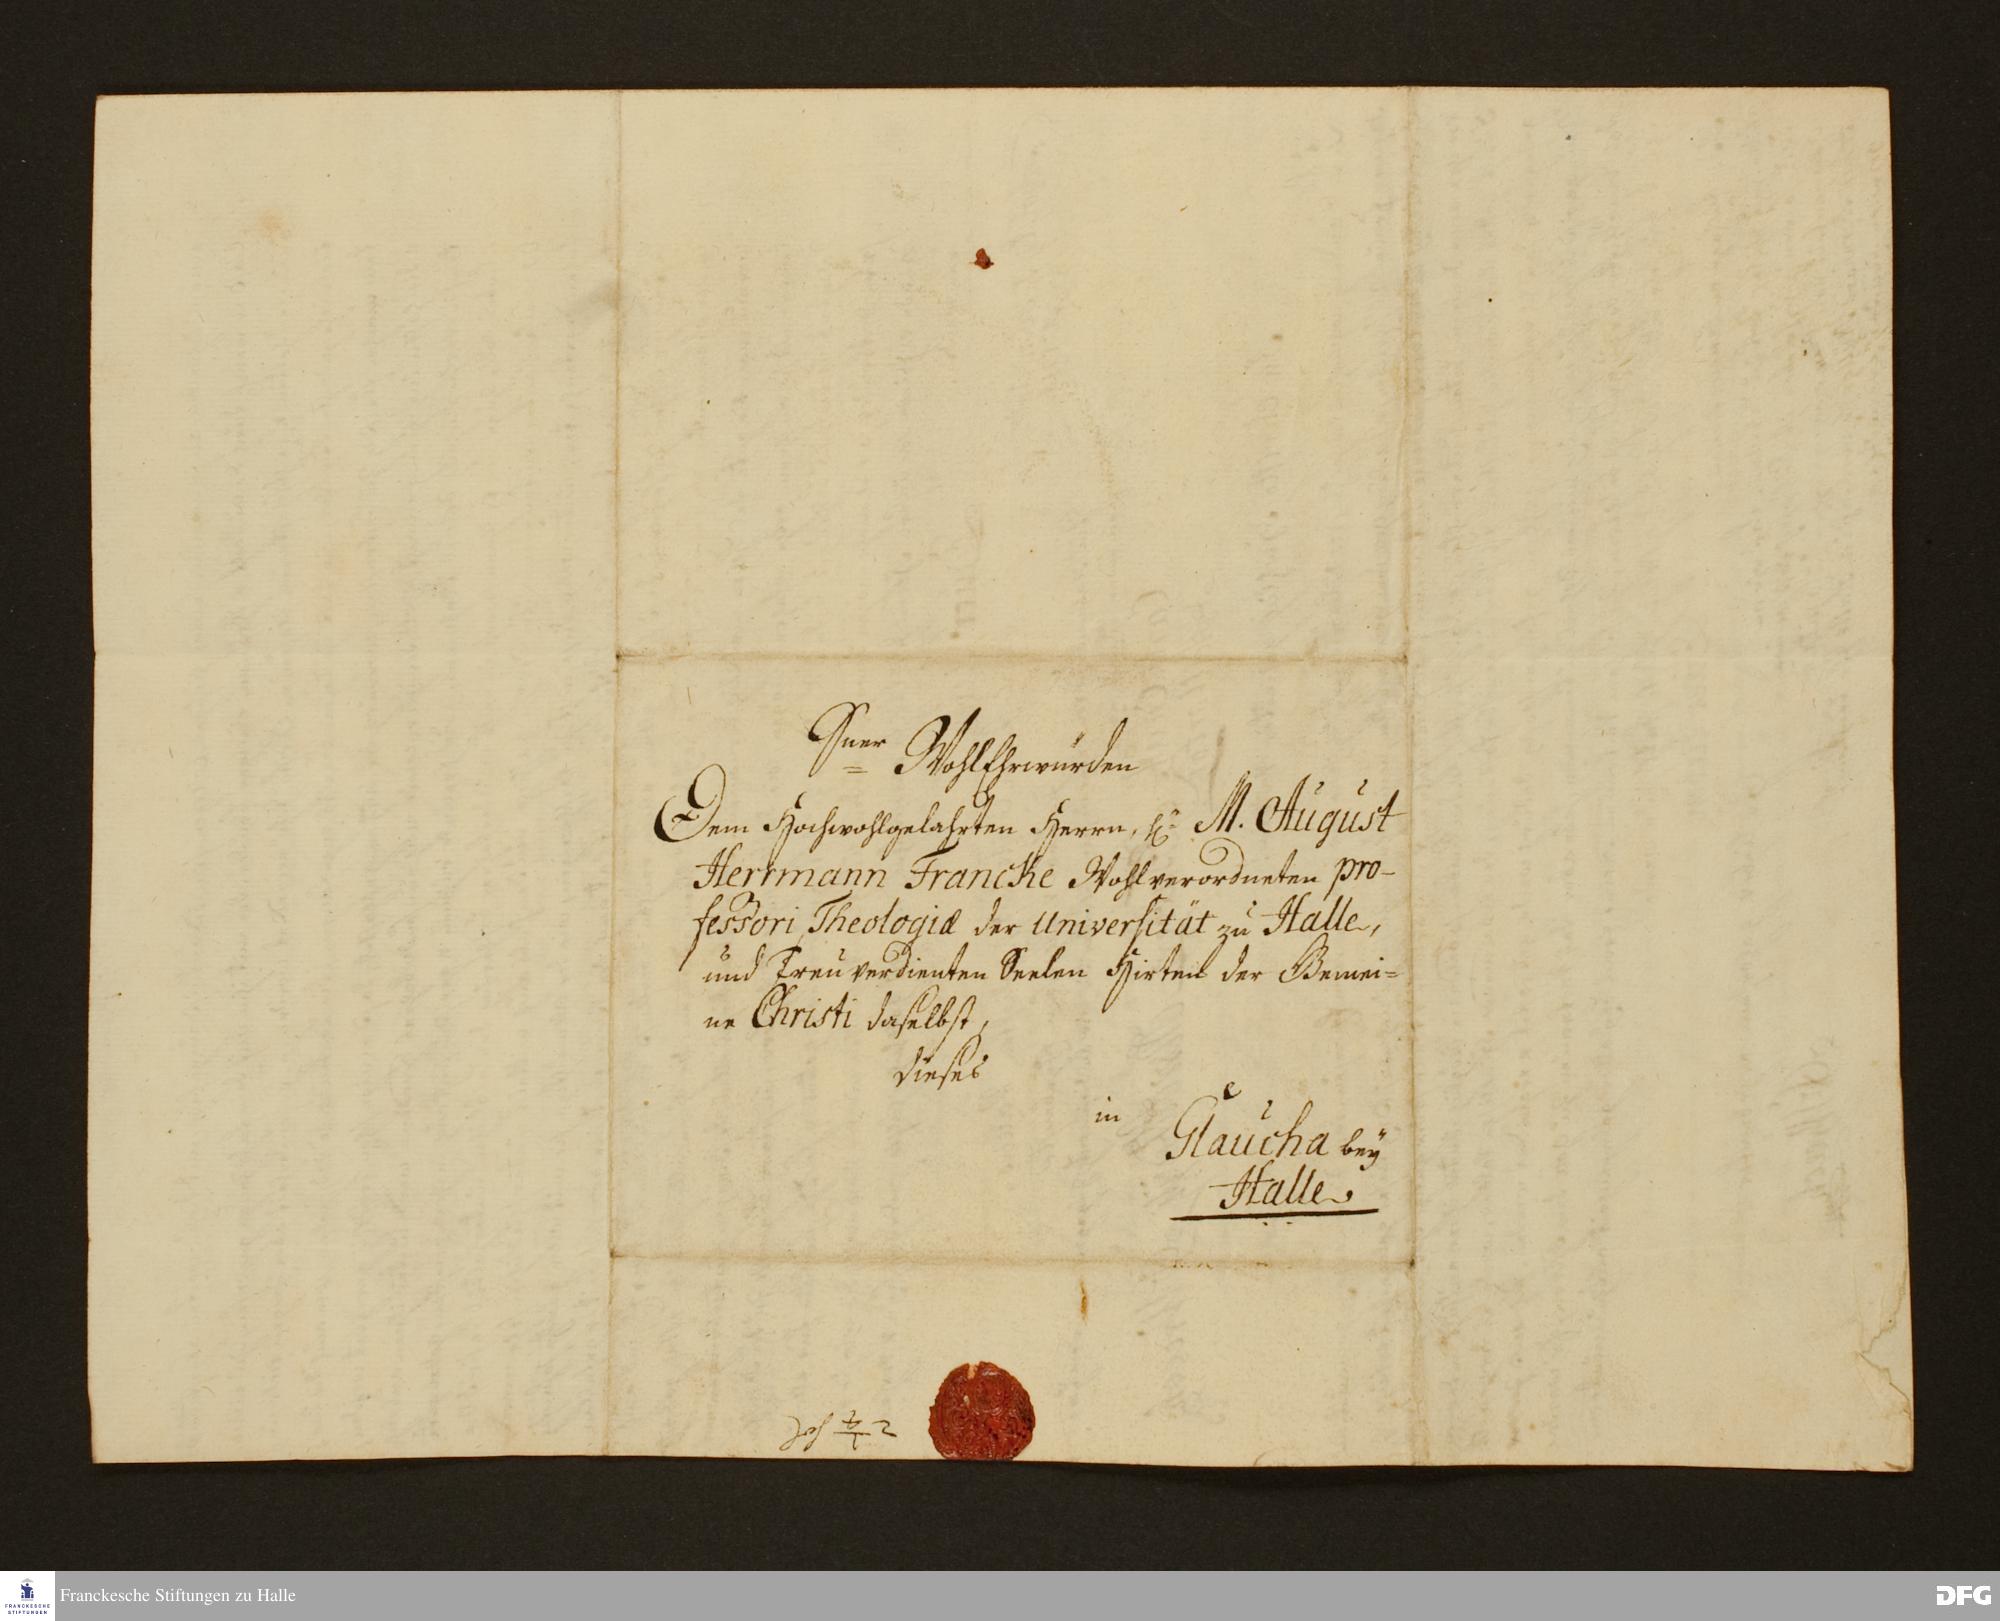 Sner WohlEhrwürden
Dem Hochwohlgelahrten Herrn, H. M. August
Herrmann Francke Wohlverordneten pro-
fessori Theologiæ der Universität zu Halle,
und Treu verdienten Seelen Hirten der Gemei=
ne Christi daselbst,
dieses
in
Glaucha bey
Halle.
Franckesche Stiftungen zu Halle
FRANCKESCHE
STIFTUNGEN
DFG